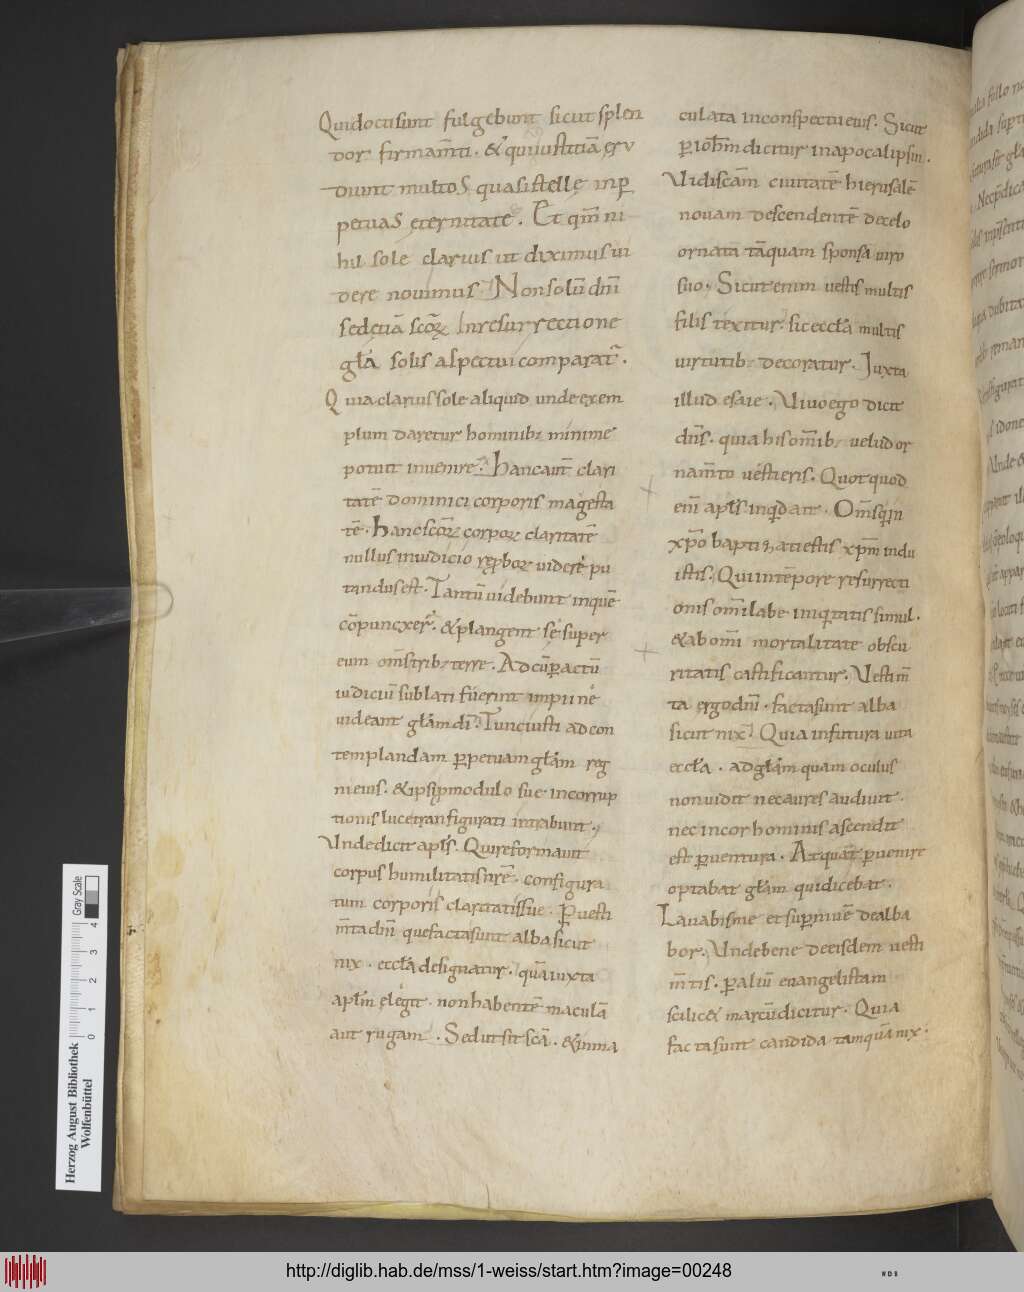 Qui docti sunt fulgebunt sicut splen
dor firmam̄ti. & qui iustitiā eru
diunt multos quasi stelle in ꝑ
petuas eternitate. Et qm̄ ni
hil sole clarius ut diximus ui
dere nouimus. Non solū dn̄i
sed etiā scōꝝ In resurrectione
gła solis aspectui comparat̄.
Quia clarius sole aliquid unde exem
plum daretur hominibꝫ minime
potuit inuenire. Hanc aut̄ clari
tatē dominici corporis magesta
tē. hanc scōꝝ corpoꝝ claritatē
nullus in iudicio reproboꝝ uidere pu
tandus est. Tantū uidebunt in quē
cōpunxer̄. & plangent se super
eum om̄s tribꝫ terre. Ad cū ꝑactū
iudiciū sublati fuerint impii ne
uideant głam dī. Tunc iusti ad con
templandam ꝑpetuam głam reg
ni eius. & ipsi ꝓ modulo sue incorrup
tionis luce transfigurati intrabunt.
Unde dicit apłs. Qui reformauit
corpus humilitatis nr̄e. configura
tum corporis claritatis sue. Per uesti
m̄ta dn̄i que facta sunt alba sicut
nix. eccła designatur. quā iuxta
apłm elegit. non habentē maculā
aut rugam. Sed ut sit scā. & inma
culata in conspectu eius. Sicut
ꝑ ioh̄m dicitur in apocalipsin.
Uidi scām ciuitatē hierusalē
nouam descendentē de celo
ornatā tāquam sponsā uiro
suo. Sicut enim uestis multis
filis texitur. sic eccła multis
uirtutibꝫ decoratur. Iuxta
illud esaie. Uiuo ego dicit
dn̄s. quia his om̄ibꝫ uelud or
nam̄to uestieris. Quotquod
eni apłs inquid ait. Om̄s qui in
xp̄o baptizati estis xp̄m indu
istis. Qui in tēpore resurrecti
onis om̄i labe iniqtatis simul.
& ab om̄i mortalitate obscu
ritatis castificantur. Uestim̄
ta ergo dn̄i. facta sunt alba
sicut nix. Quia in futura uita
eccła. ad głam quam oculus
non uidit nec auris audiuit.
nec in cor hominis ascendit
est ꝑuentura. At quā t̄ ꝑuenire
optabat głam qui dicebat.
Lauabis me et super niuē dealba
bor. Unde bene de eisdem uesti
m̄tis. ꝑ aliū euangelistam
scilic& marcū dicitur. Quia
facta sunt candida tamquā nix.
Herzog August Bibliothek
Wolfenbüttel
Gray Scale
0 1 2 3 4
http://diglib.hab.de/mss/1-weiss/start.htm?image=00248